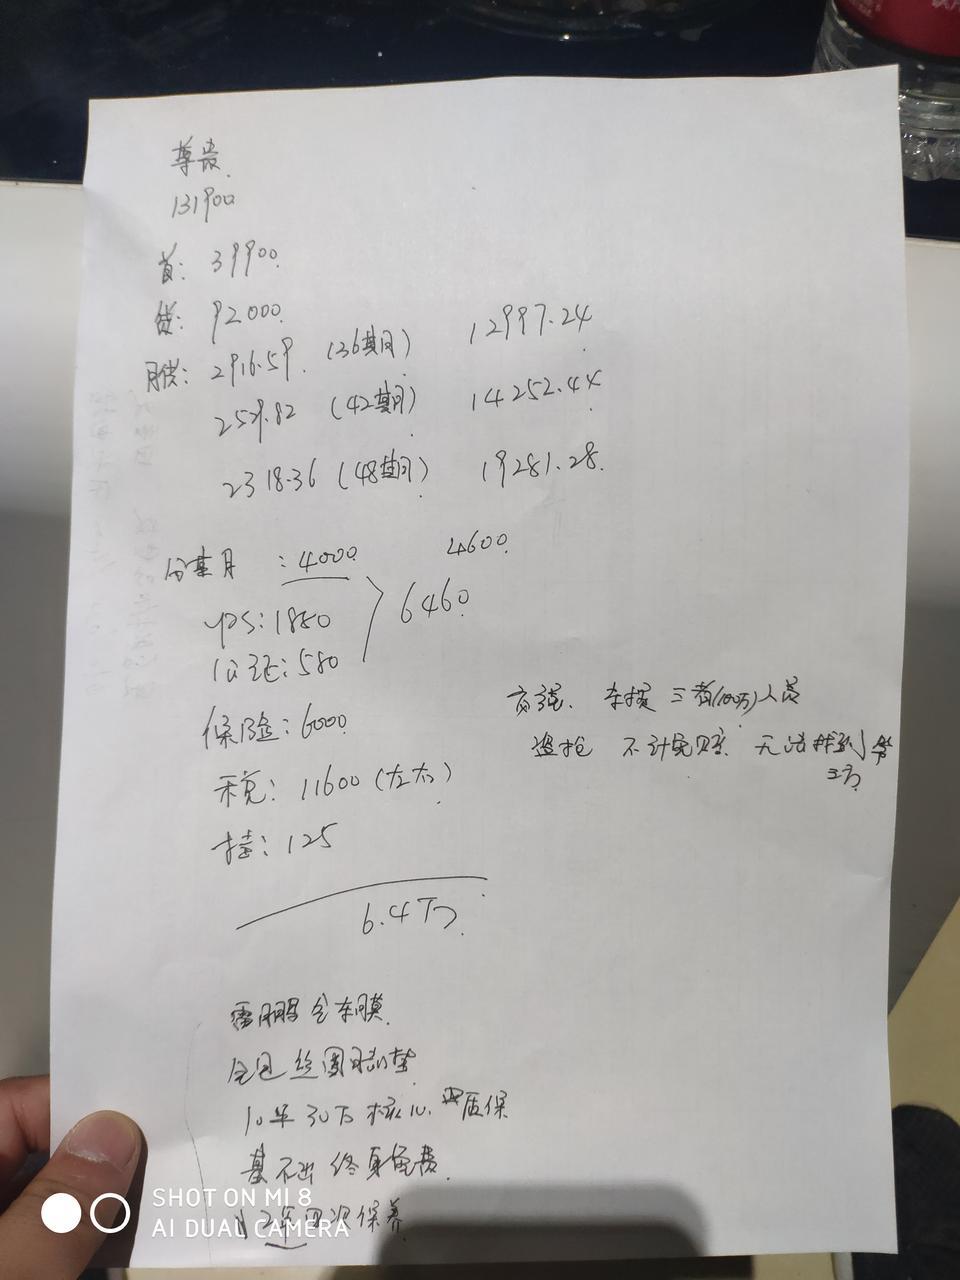 尊贵.
131900
首: 39900.
贷: 92000.
月供: 2916.59. (36期) 12997.24
2529.82 (42期) 14252.44
2318.36 (48期) 19281.28.
: 4000 4600.
GPS: 1880 6460.
公证: 580
保险: 6000. 交强. 车损 三者(100万)人员
盗抢 不计免赔. 无法找到第
三方.
税: 11600 (左右)
挂: 125
6.4万.
雷朋全车膜.
全包丝圈脚垫
10年30万核心. 质保
基础 终身免费.
2年四次保养
SHOT ON MI 8
AI DUAL CAMERA